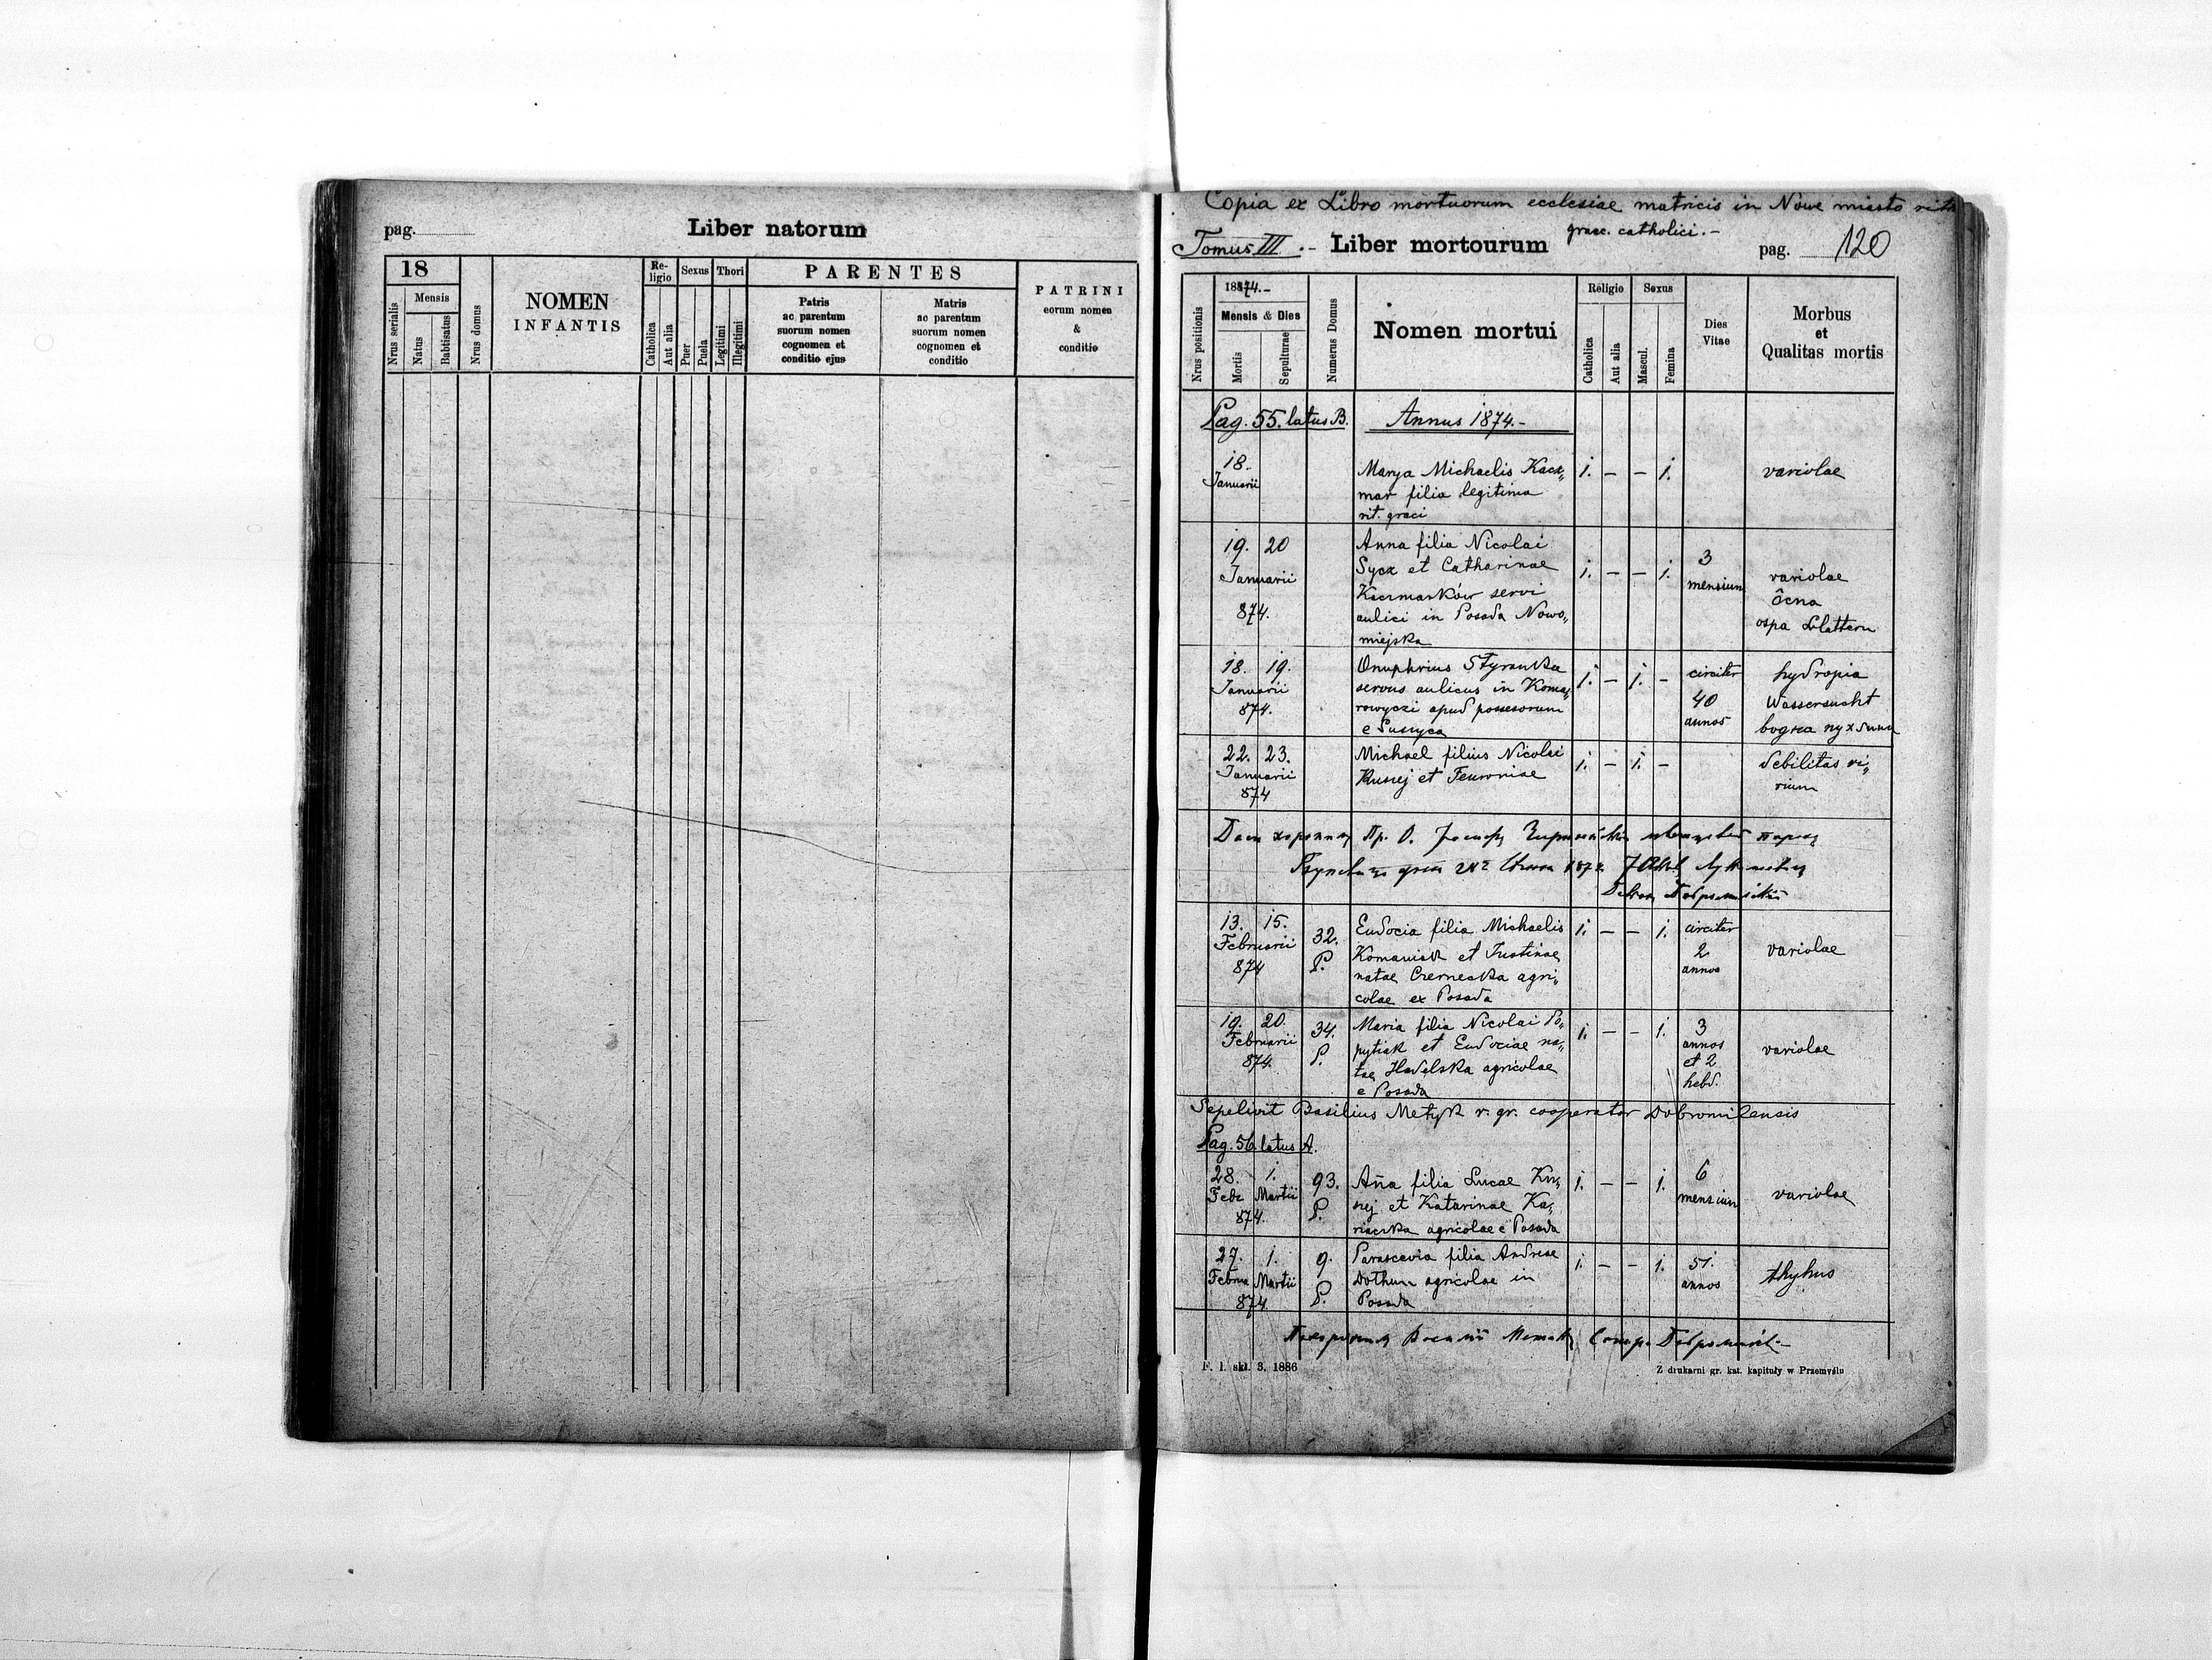 pag.
Liber natorum
18
Mensis
Nrus serialis
Natus
Babtisatus
Nrus domus
NOMEN
INFANTIS
Re-
ligio
Sexus
Thori
Catholica
Aut alia
Puer
Puela
Legitimi
Illegitimi
PARENTES
Patris
ac parentum
suorum nomen
cognomen et
conditio ejus
Matris
ac parentum
suorum nomen
cognomen et
conditio
PATRINI
eorum nomen
&
conditio
Copia ex Libro mortuorum ecclesiae matricis in Nowe miasto rita
graec. catholici.-
Tomus III.- Liber mortourum
pag. 120
Nrus positionis
1874.-
Mensis & Dies
Mortis
Sepulturae
Numerus Domus
Nomen mortui
Religio
Sexus
Catholica
Aut alia
Mascul.
Femina
Dies
Vitae
Morbus
et
Qualitas mortis
Pag. 55. latus B. Annus 1874.-
18.
Januarii
Marya Michaelis Kacz„
mar filia legitima
rit. graci
1. - - 1.
variolae
19. 20
Januarii
874.
Anna filia Nicolai
Sycz et Catharinae
Kaczmarków servi
aulici in Posada Nowo„
miejska
1. - - 1.
3
mensium
variolae
ospa Blattern
18. 19.
Januarii
874.
Onuphrius Styranka
servus aulicus in Koma„
rowyczi apud possesorum
e
1. - 1. -
circiter
40
annos
hydropia
Wassersucht
22. 23.
Januarii
874
Michael filius Nicolai
Kuszej et
1. - 1. -
debilitas vi„
rium
13. 15.
Februarii
874
32.
P.
Eudocia filia Michaelis
Komaniak et Justinae
natae Czernecka agri„
colae ex Posada
1. - - 1.
circiter
2
annos
variolae
19. 20.
Februarii
874.
34.
P.
Maria filia Nicolai Po„
pytiak et Eudociae na„
tae agricolae
e Posada
1. - - 1.
3
annos
et 2
hebd.
variolae
Sepelivit Basilius Metyk r. gr. cooperator Dobromilensis
Pag. 56. latus A.
28. 1.
Febr Martii
874.
93.
P.
Ana filia Lucae Ku„
szej et Katarinae Ka„
agricolae e Posada
1. - - 1.
6
mensium
variolae
27. 1.
Februa Martii
874.
9.
P.
Parascevia filia Andreae
Dothun agricolae in
Posada
1. - - 1.
51.
annos
thyhus
F. l. skł. 3. 1886
Z drukarni gr. kat. kapituły w Przemyślu